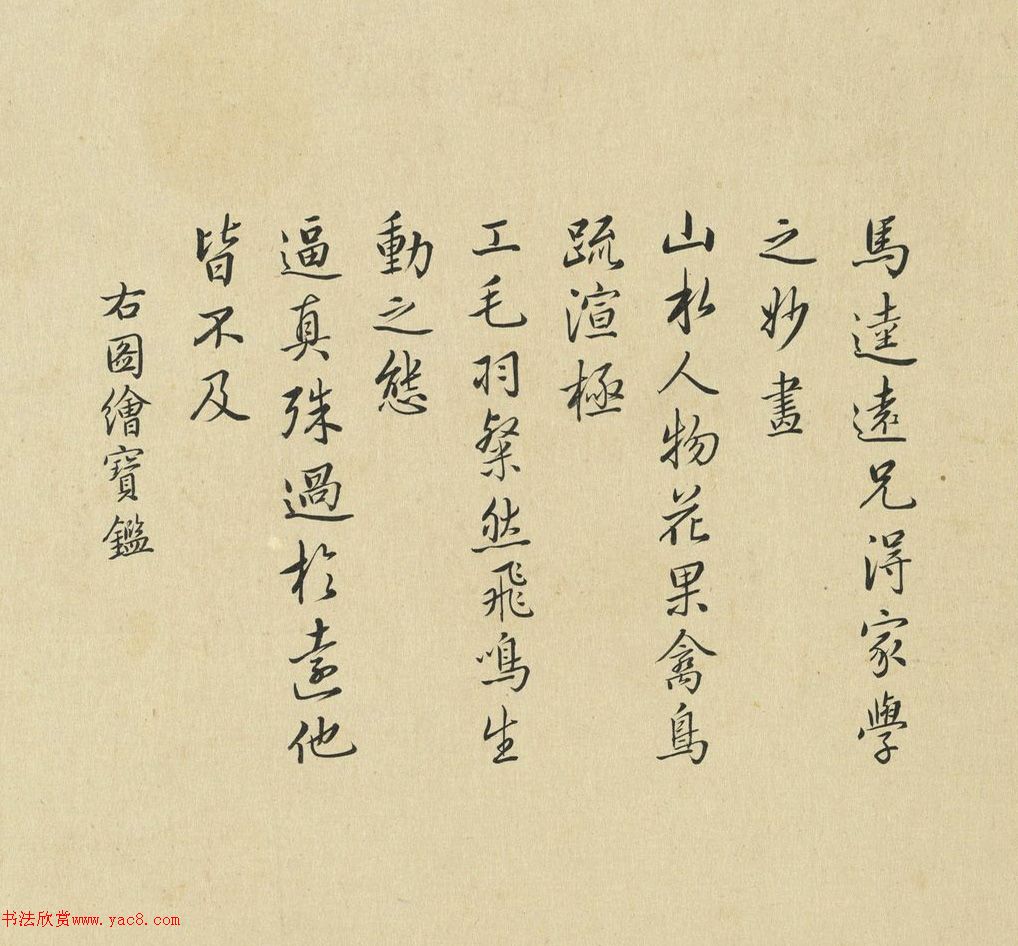 馬逵遠兄得家學
之妙畫
山水人物花果禽鳥
疏渲極
工毛羽粲然飛鳴生
動之態
逼真殊過於遠他
皆不及
右圖繪寶鑑
书法欣赏www.yac8.com